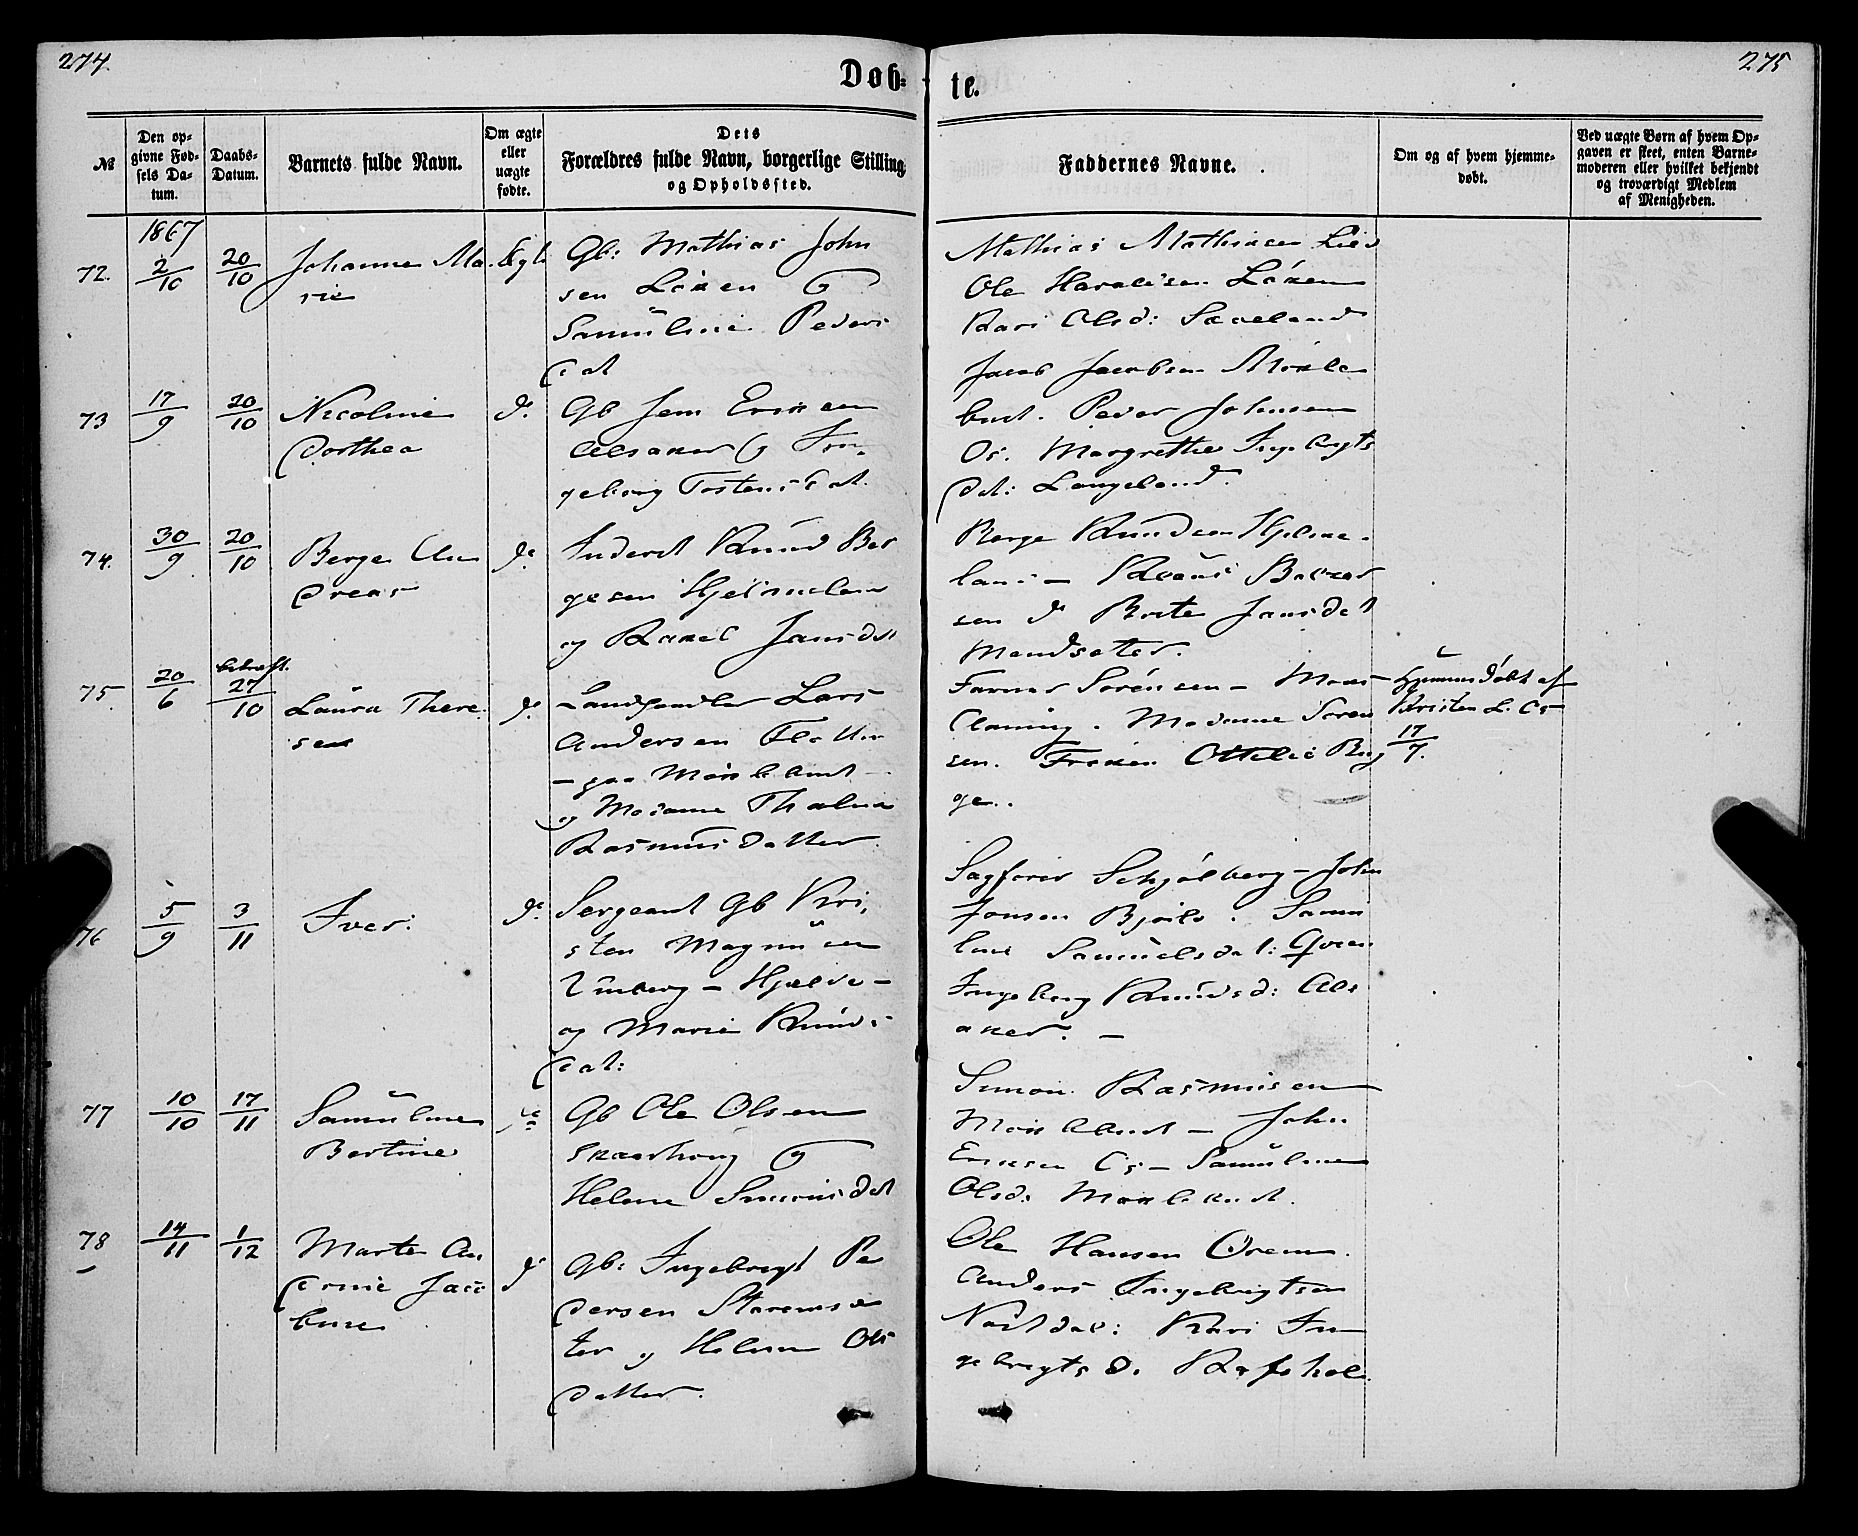 274.
Døb-
te.
275
№
Den op-
givne Fød-
sels Da-
tum.
Daabs-
Datum.
Barnets fulde Navn.
Om ægte
eller
uægte
fødte.
Dets
Forældres fulde Navn, borgerlige Stilling
og Opholdssted.
Faddernes Navne.
Om og af hvem hjemme-
døbt.
Ved uægte Børn af hvem Op-
gaven er skeet, enten Barne-
moderen eller hvilket bekjendt
og troværdigt Medlem
af Menigheden.
1867
72.
2/10
20/10
Johanne Ma-
rie
Ægte
Gb: Mathias John
sen Löken og
Samuline Peders
dat
Mathias Mathiasen
Ole Haraldsen Löken
Kari Olsd:
73
17/9
20/10
Nicoline
Dorthea
do
Gb Jens Eriksen
Alsaker og In-
geborg Tostensdat.
Jacob Jacobsen Mökle
bust. Peder Johnsen
Os. Margrethe Ingebrgts
dat: Langeland.
74.
30/9
20/10
Berge An
dreas
do
Inderst Knud Ber
gesen Hjelmeland
og Rakel Jansdat
Berge Knudsen Hjelme-
land -
sen do Brite Jansdat
Mundsæter.
75.
20/6
bekræft.
27/10
Laura There-
sea
do
Landhandler Lars
Andersen
- paa Möklebust -
og Madame Thaline
Rasmusdatter.
Farver Sörensen -
Madame Sören
sen. Frøken Ottilie Bug
ge.
Hjemmedøbt af
Kristen L. Os
17/7.
76
5/9
3/11
Iver.
do
Sergeant Gb Kri-
sten Magnusen
Hjelde -
og Marie Knuds
dat:
Sagfører Schjølberg - John
Jonsen
line Samuelsdat:
Ingeborg Knudsd: Als
aker. -
77
10/10
17/11
Samuline
Bertine
do
Gb Ole Olsen
Skaarhoug og
Helene Simonsdat
Simon Rasmusen
Möklebust - John
Eriksen Os - Samuline
Olsd: Möklebust.
78
14/11
1/12
Marte An
drine Jaco
bine
do
Gb: Ingebregt Pe
dersen Staremsæ
ter og Helene Ols
datter.
Ole Hansen
Anders Ingebrigtsen
Kari In
gebregtsd.